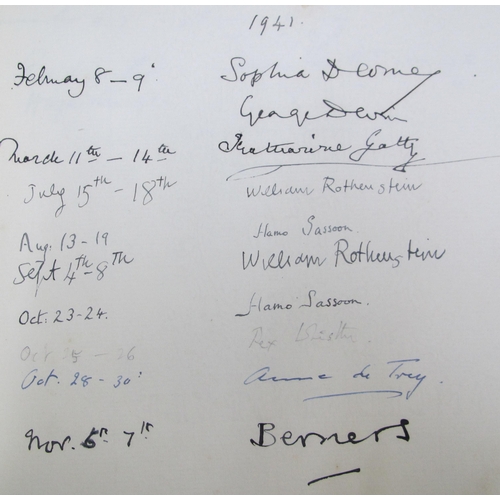 1941.
February 8 - 9
Sophia
George
March 11th - 14th Katharine Gatty
July 15th - 18th William Rothenstein
Aug. 13 - 19 Hamo Sassoon.
Sept 4th - 8th William Rothenstein
Oct: 23-24. Hamo Sassoon.
Oct 25 - 26 Rex Whistler
Oct. 28 - 30: Anne de Trey.
Nov. 6th 7th Berners